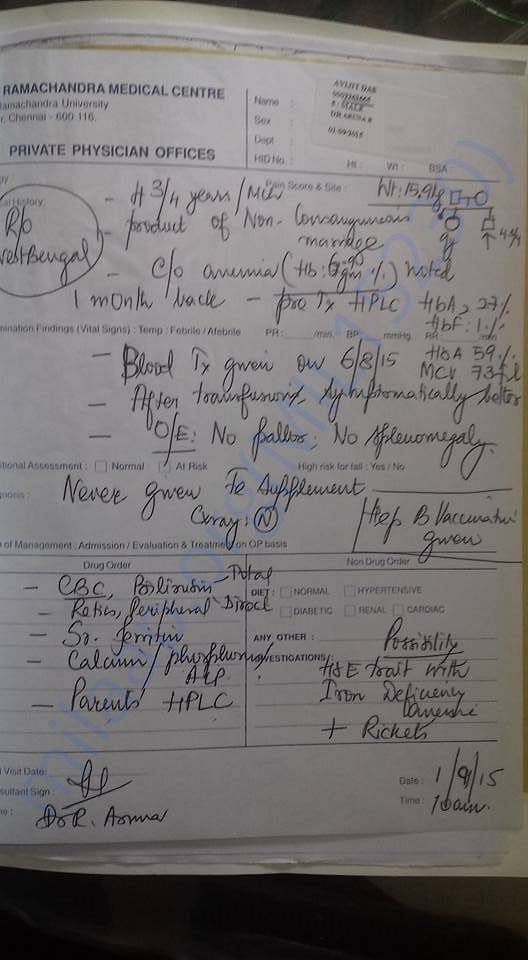 RAMACHANDRA MEDICAL CENTRE
amachandra University
r, Chennai - 600 116.
PRIVATE PHYSICIAN OFFICES
Name :
Sex :
Dept :
HID No. : Ht : Wt : BSA
AVIJIT DAS
01-09-2015
Pain Score & Site :
History:
R/o
West Bengal
3/4 years / Mch
Wt: 15.9 kg
- product of Non-Consanguineous
marriage
- C/o anemia (Hb: gm %) noted
1 month back - pre Tx HPLC HbA2 27%
HbF: 1.%
mination Findings (Vital Signs) : Temp : Febrile / Afebrile PR: /min. BP: mmHg. RR: /min
- Blood Tx given on 6/8/15 HbA 59%
MCV 73 fl
- After transfusion, symptomatically better
- O/E: No pallor; No splenomegaly.
tional Assessment : Normal ✓ At Risk High risk for fall : Yes / No
gnosis : Never given Fe supplement
Cxray: (N)
Hep B Vaccination
given
of Management : Admission / Evaluation & Treatment on OP basis
Drug Order
Non Drug Order
- CBC, Bilirubin - Total
Direct
- Retics, Peripheral
- Sr. ferritin
- Calcium / phosphorus /
ALP
- Parents' HPLC
DIET : NORMAL HYPERTENSIVE
DIABETIC RENAL CARDIAC
ANY OTHER :
INVESTIGATIONS :
Possibility
HbE trait with
Iron Deficiency
anemia
+ Rickets
Visit Date:
sultant Sign :
Date : 1/9/15
Time : 10am.
me : Dr R.